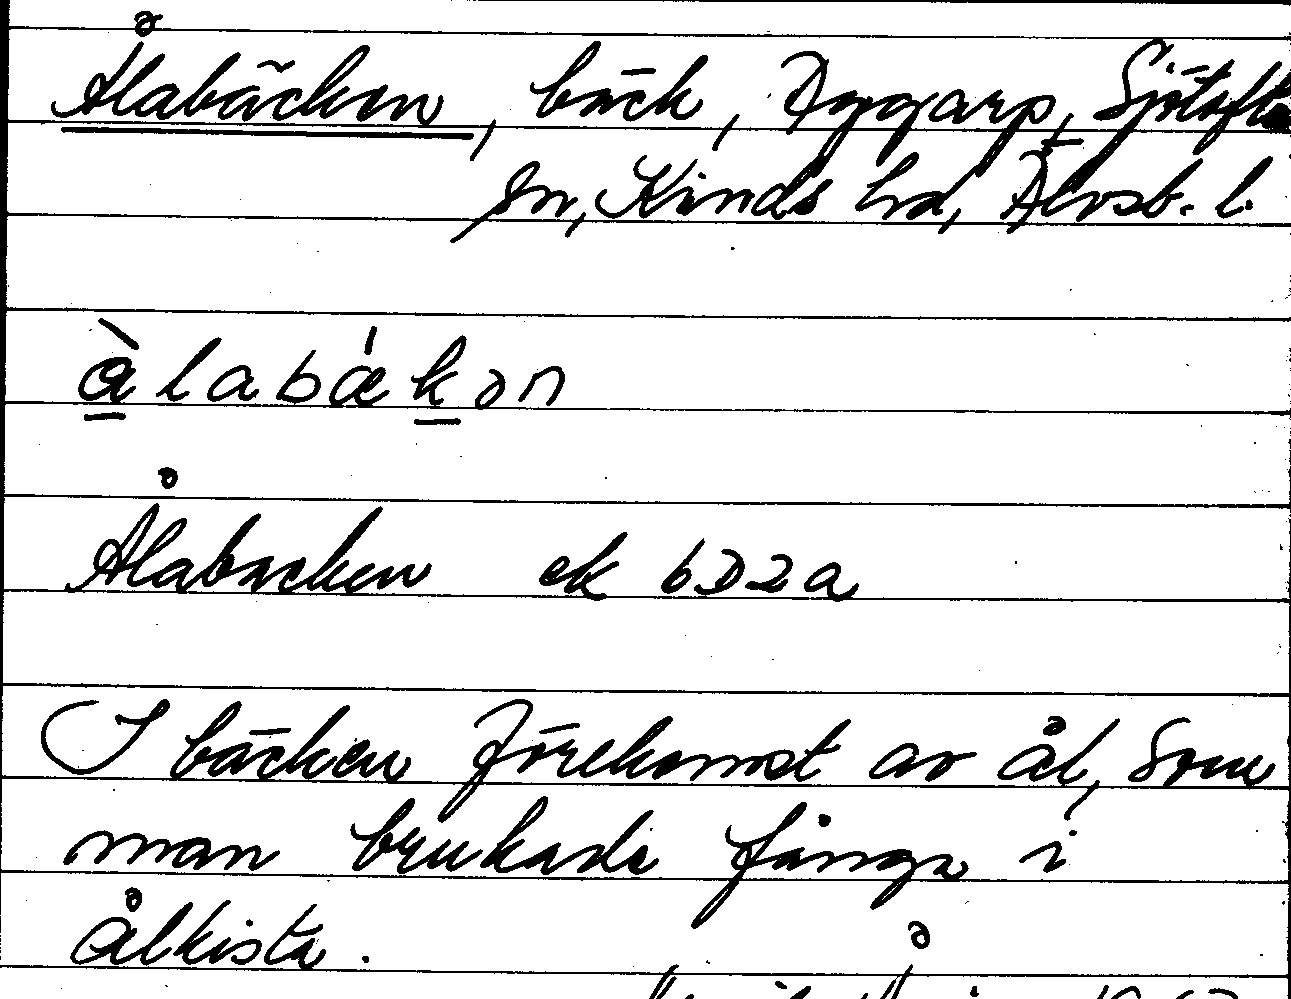 Ålabäcken, bäck, Dyggarp, Sjötofta
sn, Kinds hd, Älvsb. l.
àlabǽkən
Ålabäcken ek 6D2a
I bäcken förekomst av ål, som
man brukade fånga i
ålkista.